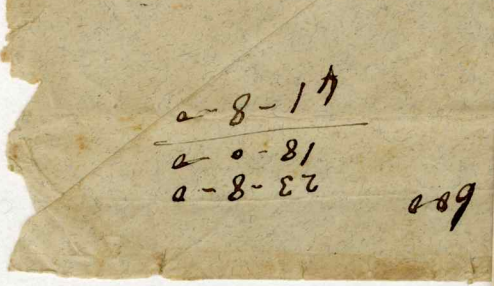 23-8-0
18-0 0
41-8-0